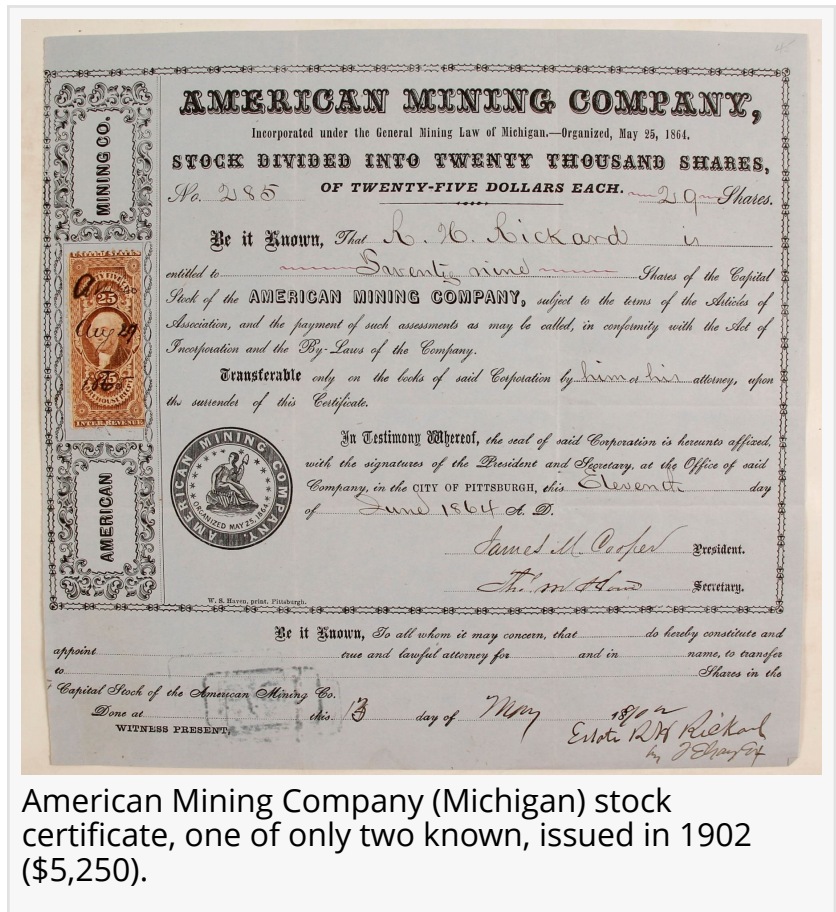 AMERICAN MINING COMPANY,
Incorporated under the General Mining Law of Michigan.—Organized, May 25, 1864.
STOCK DIVIDED INTO TWENTY THOUSAND SHARES,
OF TWENTY-FIVE DOLLARS EACH.
No. 285 29 Shares.
Be it Known, That R. H. Rickard is
entitled to Seventy nine Shares of the Capital
Stock of the AMERICAN MINING COMPANY, subject to the terms of the Articles of
Association, and the payment of such assessments as may be called, in conformity with the Act of
Incorporation and the By-Laws of the Company.
Transferable only on the books of said Corporation by him or his attorney, upon
the surrender of this Certificate.
In Testimony Whereof, the seal of said Corporation is hereunto affixed,
with the signatures of the President and Secretary, at the Office of said
Company, in the CITY OF PITTSBURGH, this Eleventh day
of June 1864 A. D.
James M. Cooper President.
Secretary.
MINING CO.
AMERICAN
25
Aug 29
25
INTER. REVENUE
AMERICAN MINING COMPANY.
ORGANIZED MAY 25, 1864
W. S. Haven, print. Pittsburgh.
Be it Known, To all whom it may concern, that do hereby constitute and
appoint true and lawful attorney for and in name, to transfer
to Shares in the
Capital Stock of the American Mining Co.
Done at this 13 day of May
WITNESS PRESENT,
Estate R H Rickard
by
American Mining Company (Michigan) stock
certificate, one of only two known, issued in 1902
($5,250).